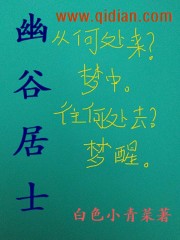 www.qidian.com
幽谷居士
从何处来?
梦中。
往何处去?
梦醒。
白色小青菜著